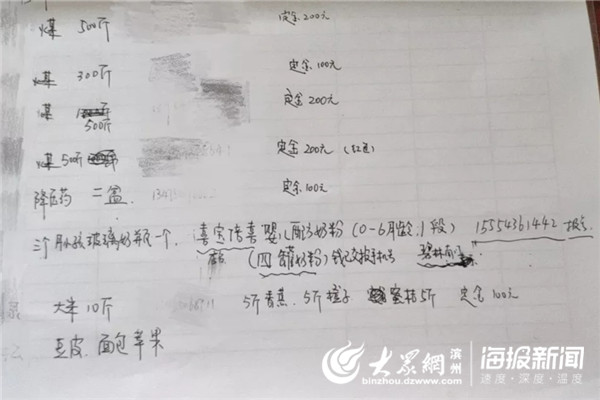 煤 500斤 定金200元
煤 300斤 定金100元
煤 500斤 定金200元
煤 500斤 定金200元（红包）
降压药 二盒 定金100元
三个月小孩玻璃奶瓶一个、喜宝倍喜婴儿配方奶粉（0-6月龄、1段）15554361442
（四罐奶粉）
大米10斤 5斤香蕉、5斤橙子 蜜桔5斤 定金100元
豆皮、面包苹果
大众网 滨州 海报新闻
binzhou.dzwww.com 速度·深度·温度